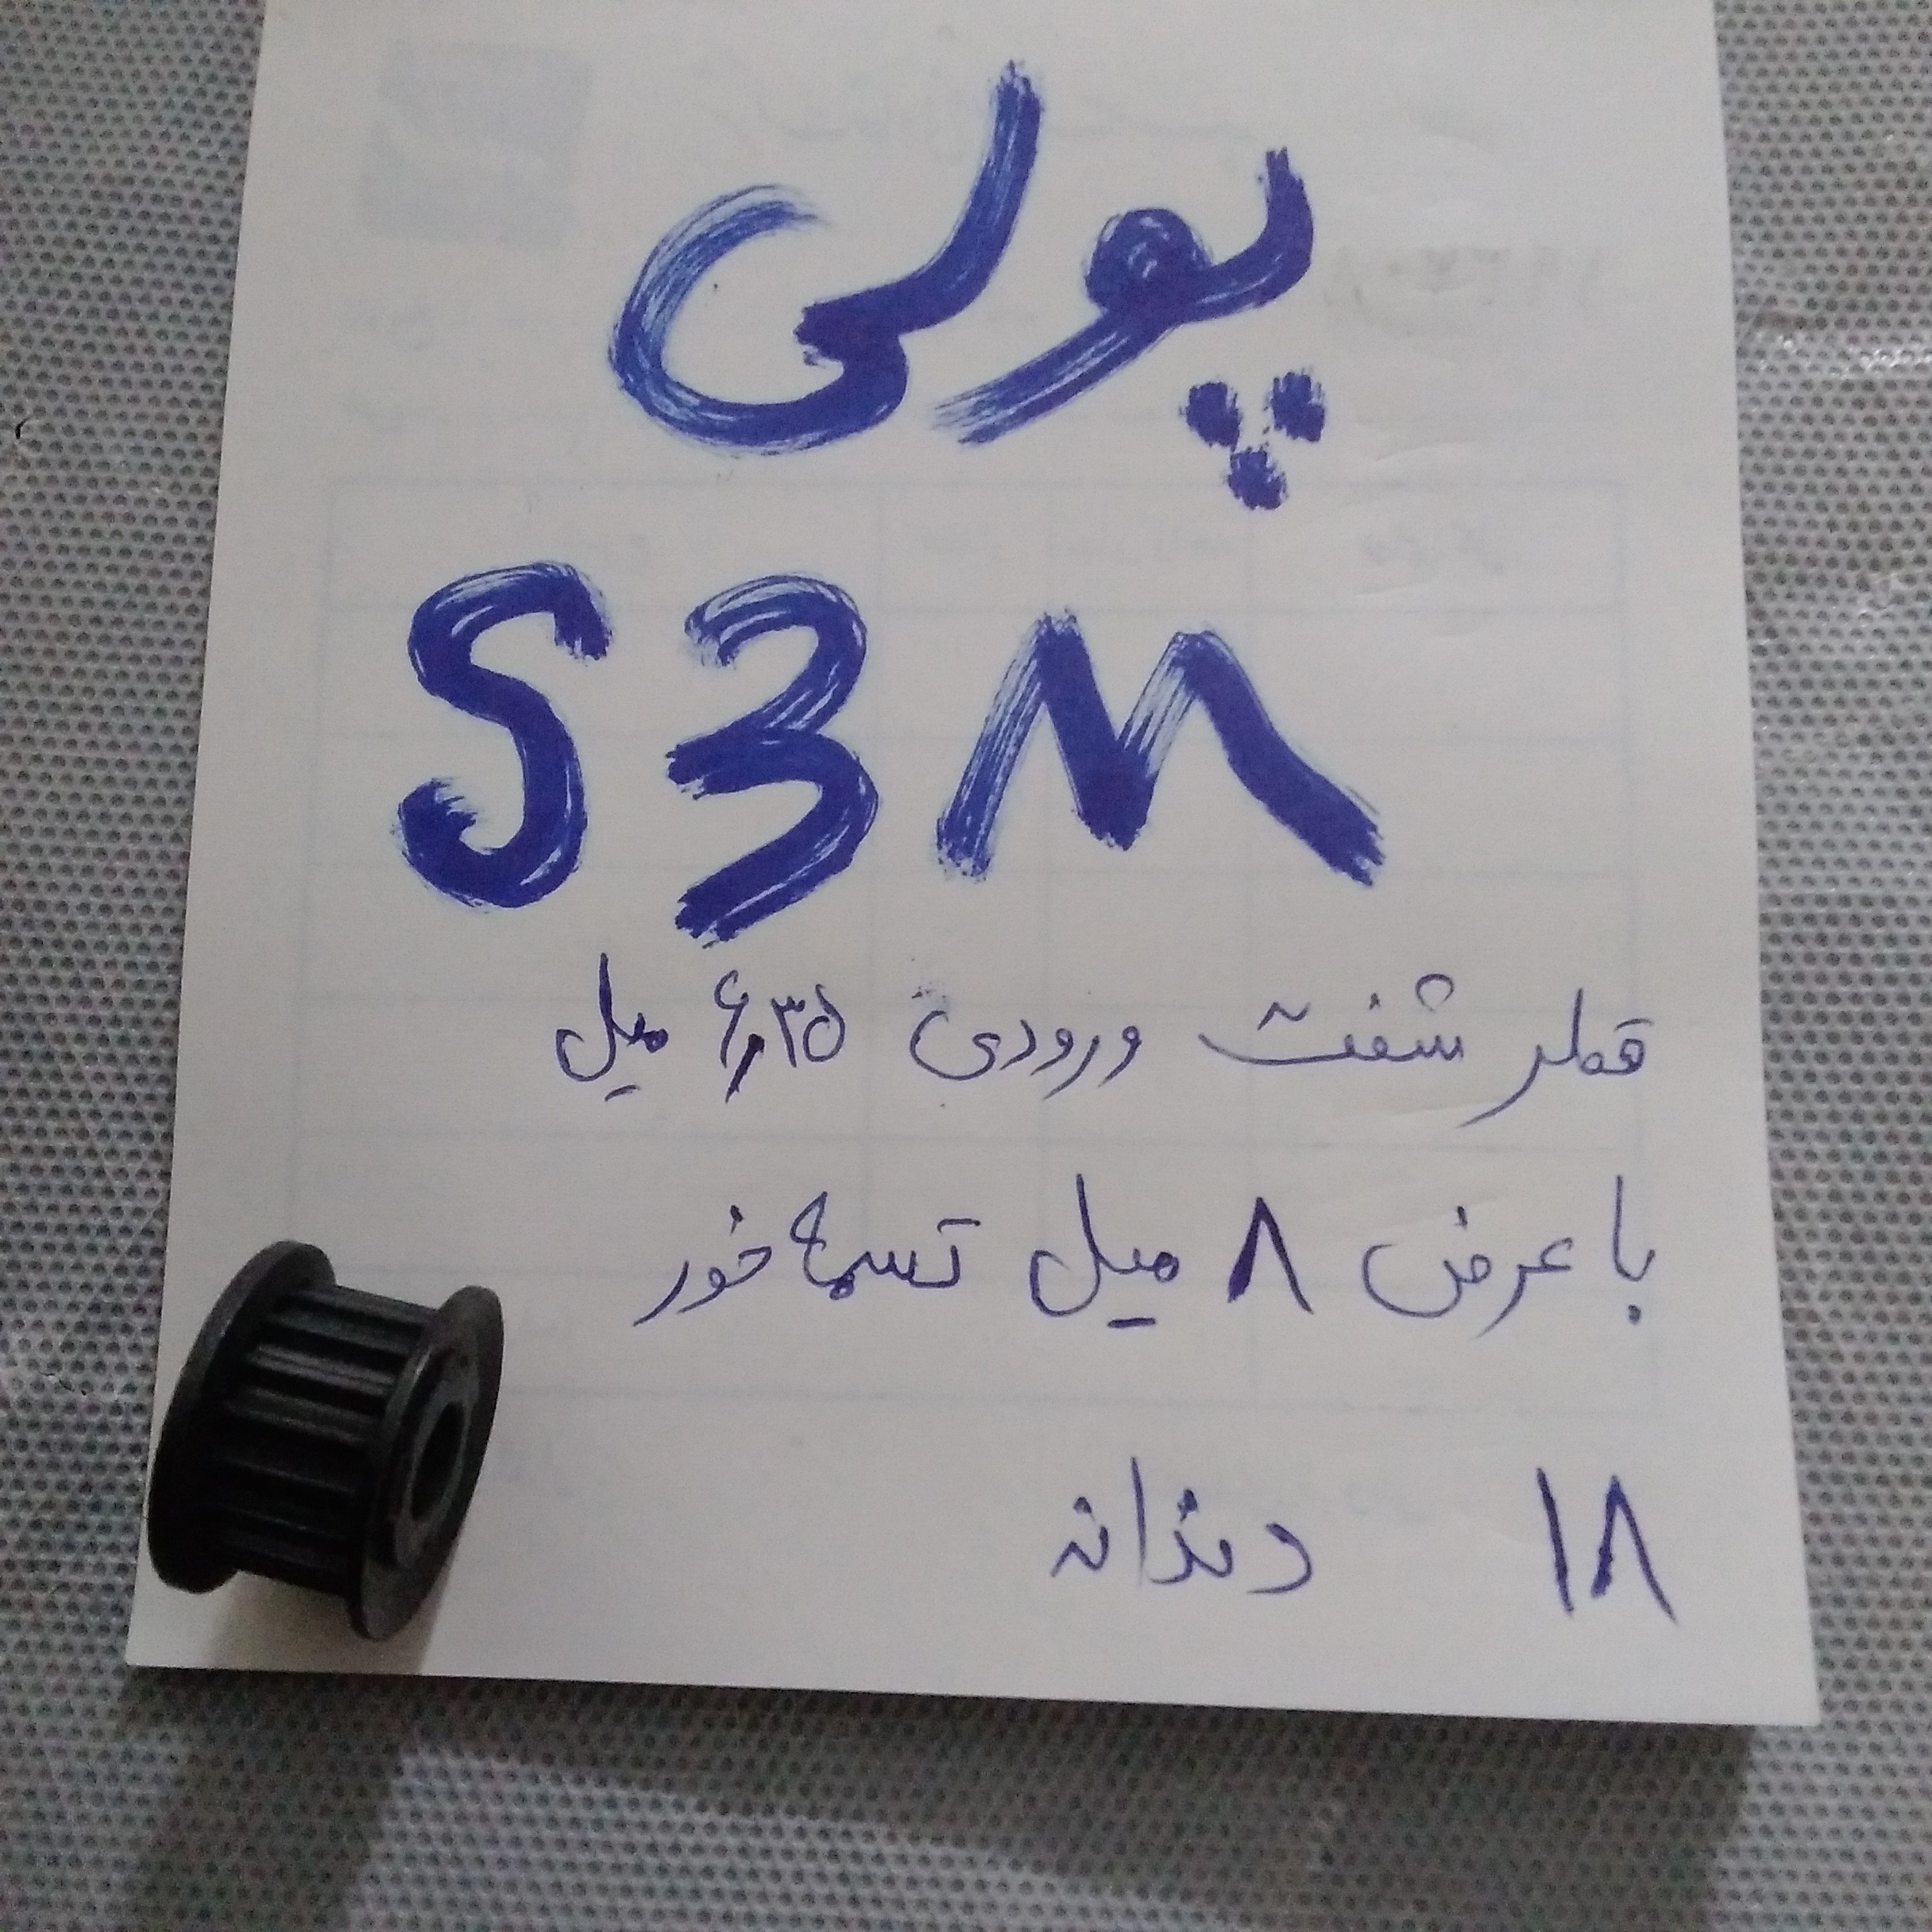 پولی
S3M
قطر شفت ورودی ۶٫۳۵ میل
با عرض ۸ میل تسمه خور
۱۸ دندانه